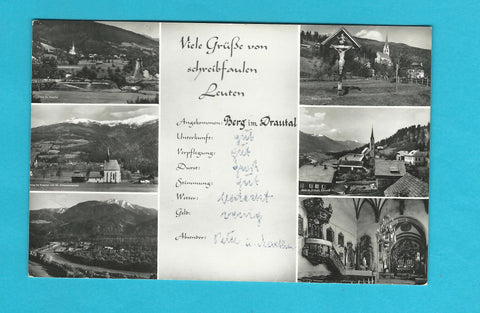 Viele Grüße von
schreibfaulen
Leuten
Angekommen: Berg im Drautal
Unterkunft: gut
Verpflegung: gut
Durst: groß
Stimmung: gut
Wetter:
Geld: wenig
Absender: Peter u.